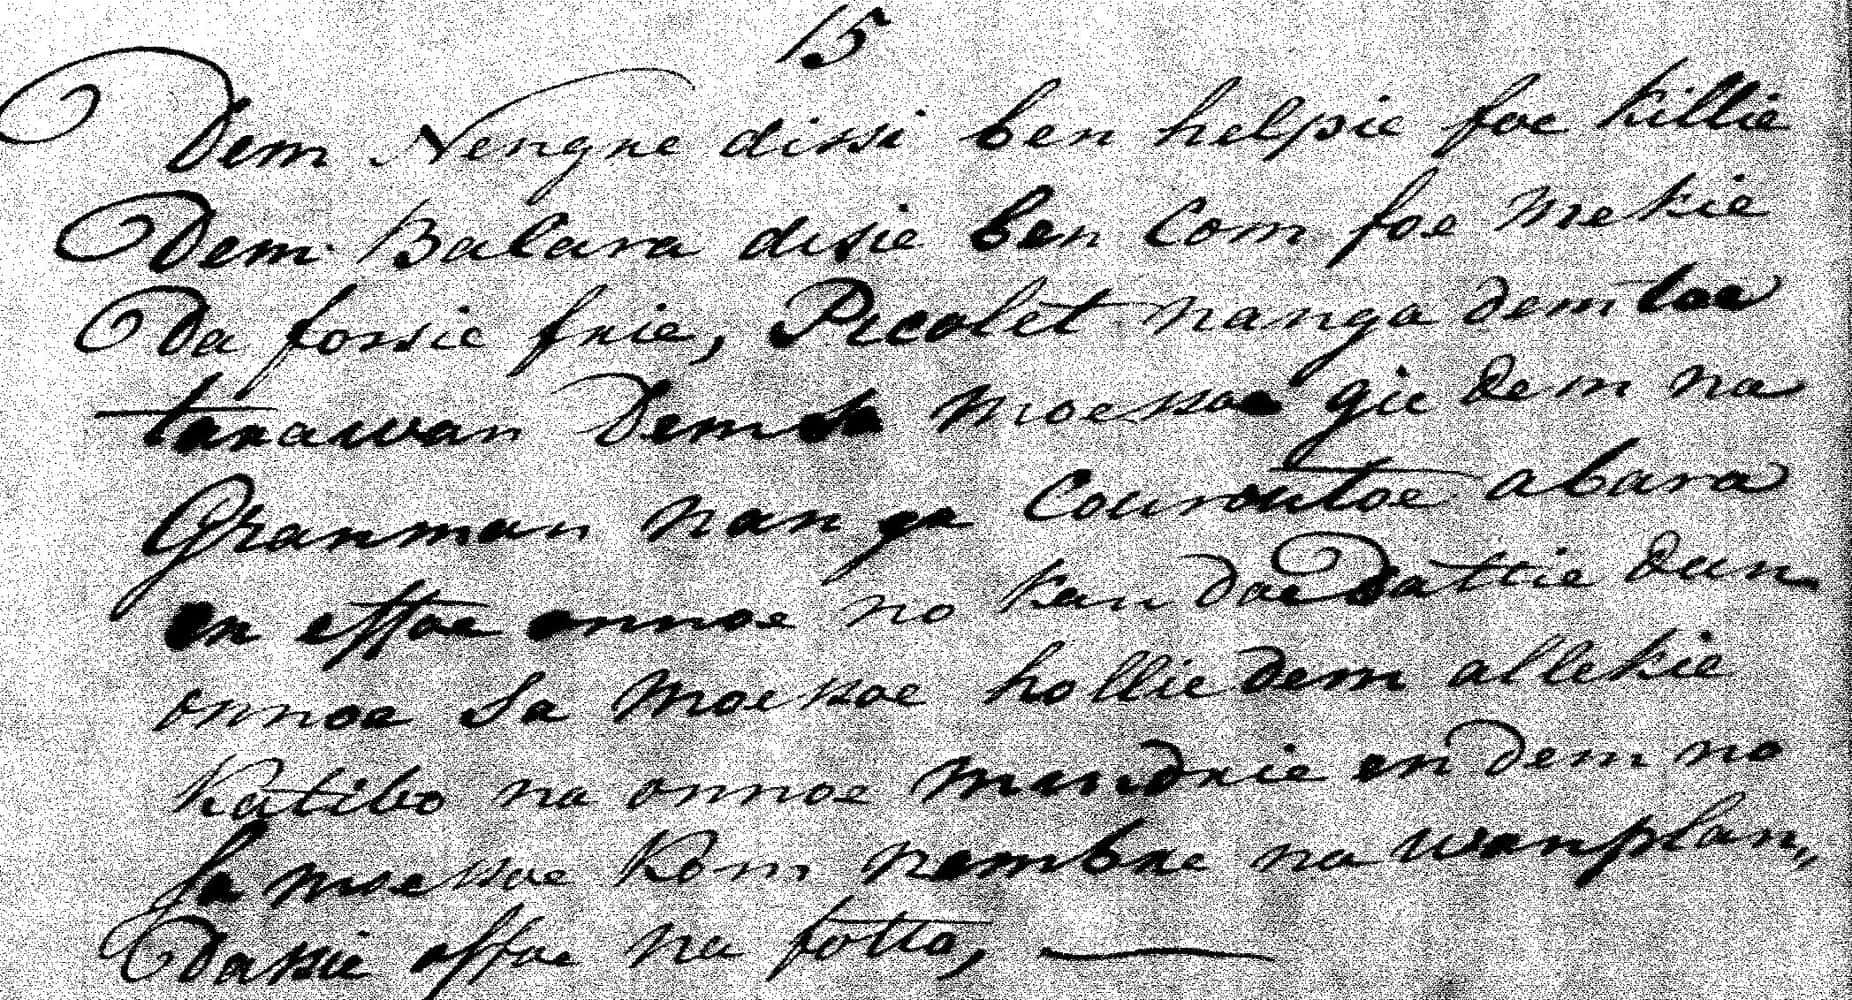 15
Dem Nengre dissi ben helpie foe killie
Dem Balara disie ben com foe mekie
Da fossie frie, Picolet nanga dem toe
tarawan Dem sa moessoe gie dem na
Granman nanga Couroutoe abara
en effoe onnoe no kan doe dattie dan
onnoe sa moesoe hollie dem allekie
Katibo na onnoe mandrie en dem no
sa moessoe kom nembre na wanplan,,
Dassie offoe na fotto,